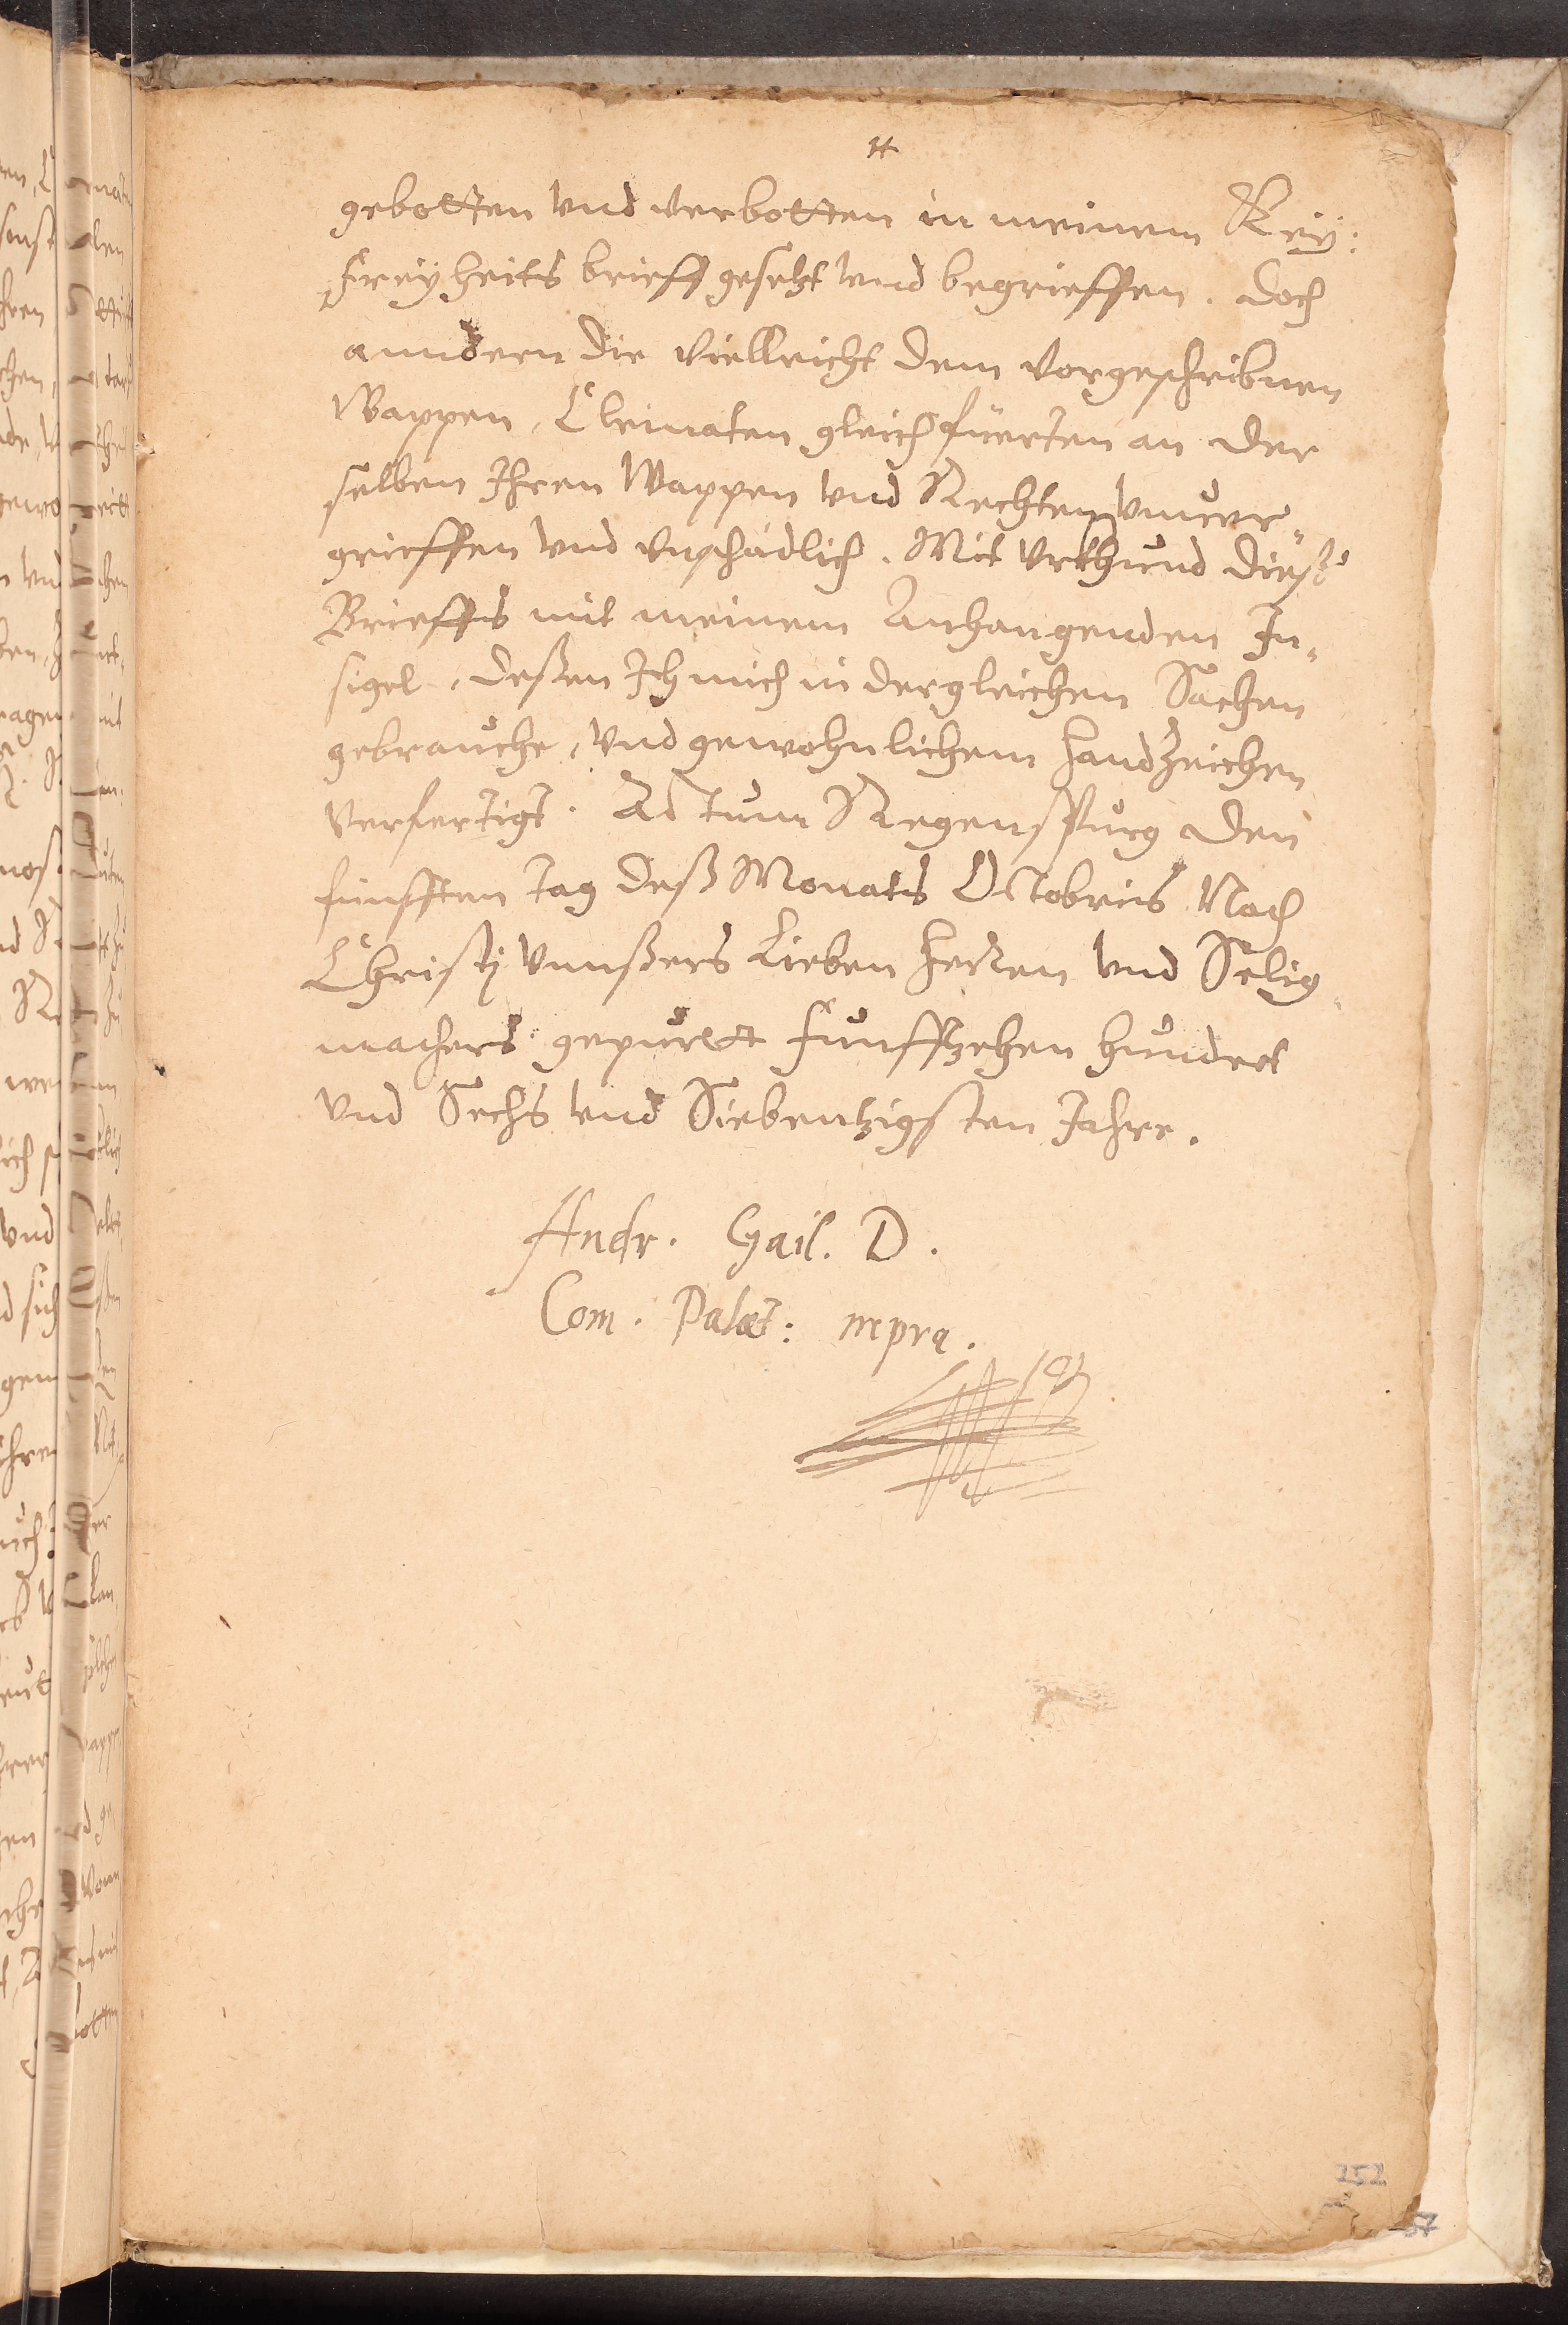 gebotten vnd verbotten in meinem Key:
Freyheits brieff gesetzt vnd begrieffen. Doch
anndern die Villeicht dem Vorgeschribnen
Wappen, Cleinaten gleich füerten an der
selben Ihren Wappen vnd Rechten vnuer„
grieffen vnd vnschädlich. Mit Vrkhund dieß
Brieffs mit meinem Anhangenden In„
sigel, deßen Ich mich in dergleichen Sachen
gebrauche, vnd gewohnlichem Handzeichen
verfertigt. Actum Regenspurg den
fünfften tag deß Monats Octobris Nach
Christj vnnßers Lieben Herren vnd Selig„
machers gepurtt Funffzehen hundert
vnd Sechs vnd Siebentzigsten Jahre.
Andr. Gail. D.
Com. Palat: mpra.
252
57